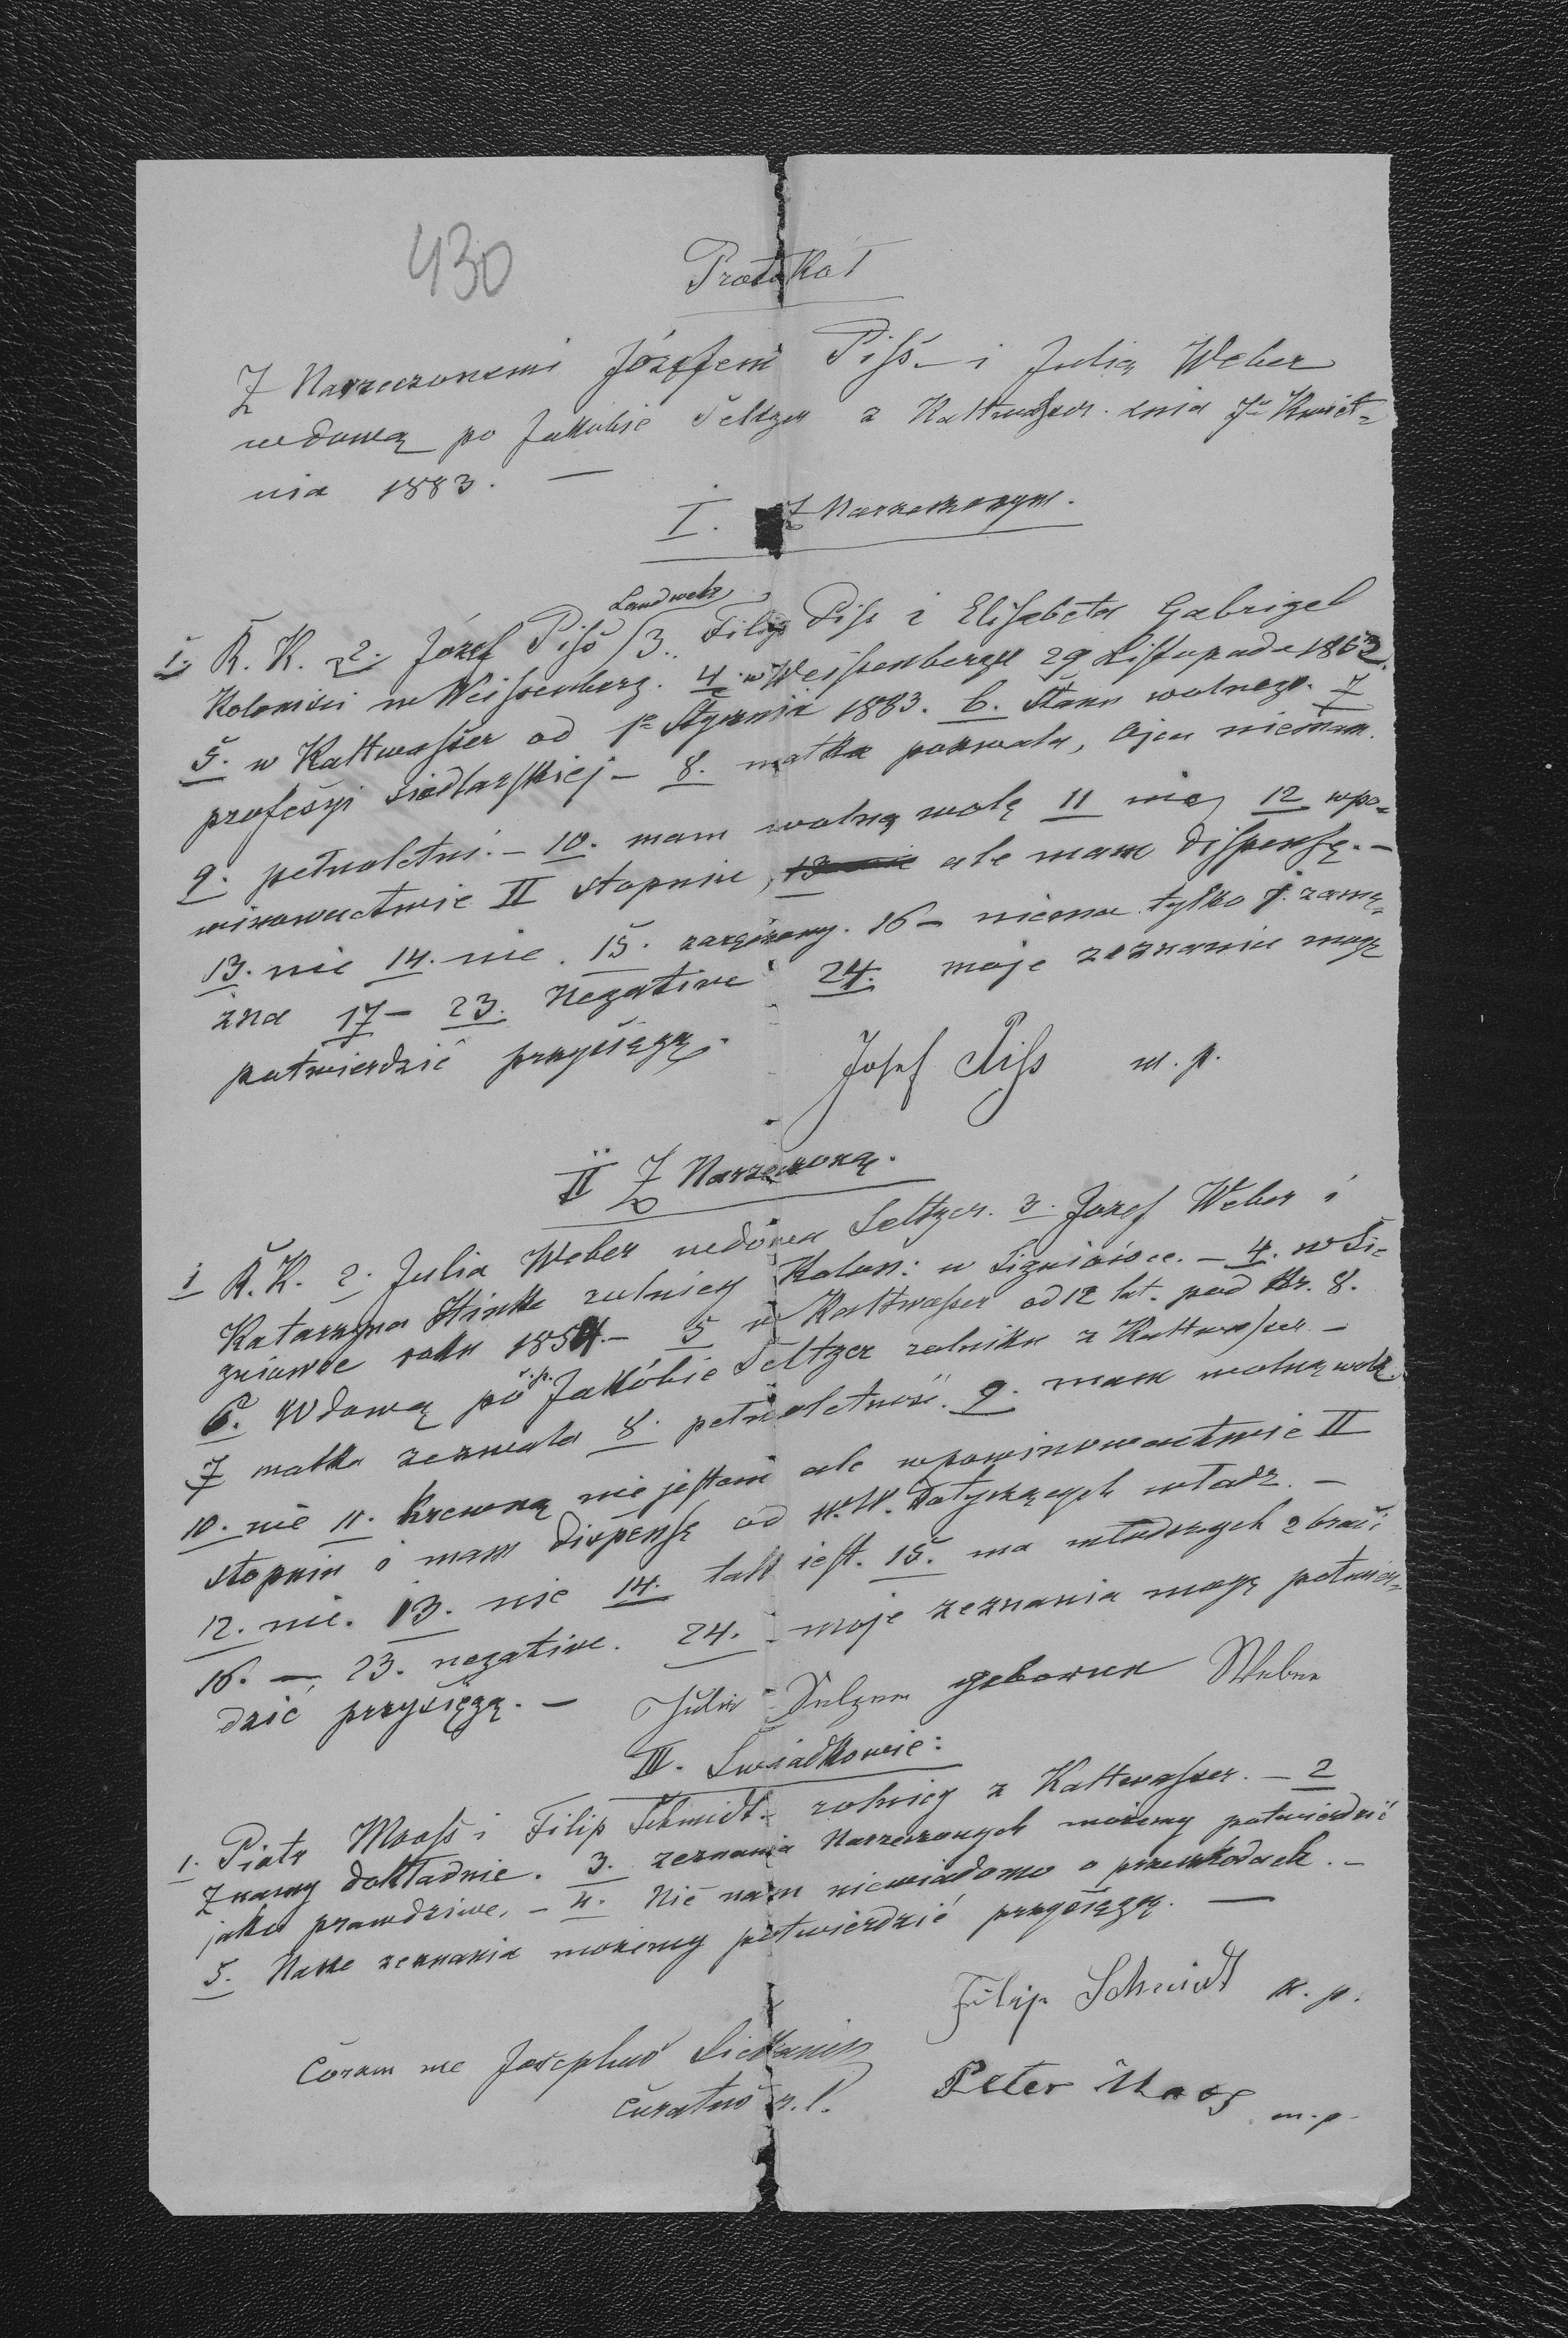 430
Protokół
Z Narzeczonemi Józefem Piſs. i Julią Weber
wdową po Jakóbie Seltzer z Kaltwaſser dnia 7º Kwiet=
nia 1883. —
I. Z Narzeczonym.
Landwehr
1. R. K. 2. Józef Piſs / 3. Filip Piſs i Eliſabeta Gabrigel
Koloniści w Weiſsenberg. 4. w Weiſsenbergu 29 Liſtopada 1862.
5. w Kaltwaſser od 1º Stycznia 1883. 6. Stanu wolnego. 7
profeſsyi siodlarſkiej – 8. matka pozwala, Ojca niemam.
9. pełnoletni. – 10. mam wolną wolę 11 nie, 12 wpo=
winowactwie II stopniu, 13 nie ale mam diſpenſę. –
13. nie 14. nie. 15. zaręczony. 16 – niema tylko j. zamę=
żna 17 – 23. Negative 24. moje zeznania mogę
potwierdzić przysięgą.
Joſef Piſs m. p.
II Z Narzeczoną.
1 R. K. 2. Julia Weber wdowa Seltzer. 3. Jozef Weber i
Katarzyna Hinke rolnicy Kolon: w Signiówce. – 4. w Si=
gniówce roku 1854. – 5 w Kaltwaſser od 12 lat. pod Nr. 8.
6. Wdową po ś. p. Jakóbie Seltzer rolniku z Kaltwaſser –
7 matka zezwala 8. pełnoletność. 9. mam wolną wolę
10. nie 11. krewną nie jeſtem ale wpowinowactwie II
stopniu i mam diſpenſę od W.W. dotyczących władz. –
12. nie. 13. nie 14. tak jeſt. 15. ma młodszych 2 braci
16. – 23. negative. 24. – moje zeznania mogę potwier=
dzić przysięgą. –
Julia Selzer geborene Weber
III. Świadkowie:
1. Piotr Mooſs i Filip Schmidt rolnicy z Kaltwaſser. – 2
Znamy dokładnie. 3. zeznania Narzeczonych możemy potwierdzić
jako prawdziwe. – 4. Nic nam niewiadomo o przeszkodach. –
5. Nasze zeznania możemy potwierdzić przysięgą. —
Filip Schmidt m. p.
Coram me Josephus
Curatus r. l.
Peter Moos m. p.